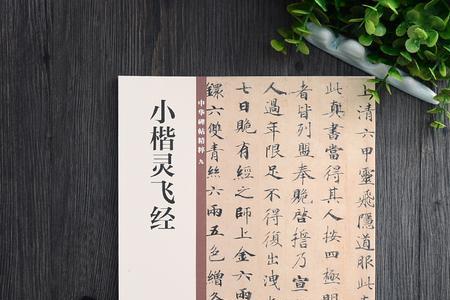 小楷灵飞经
中华碑帖精粹 九
上清六甲靈飛隱道服此
此真書當得其人按四極明
者皆列盟奉貺啓誓乃宣
人過年限足不得復出洩
七日貺有經之師上金六兩
鐶六雙青絲六兩五色繒